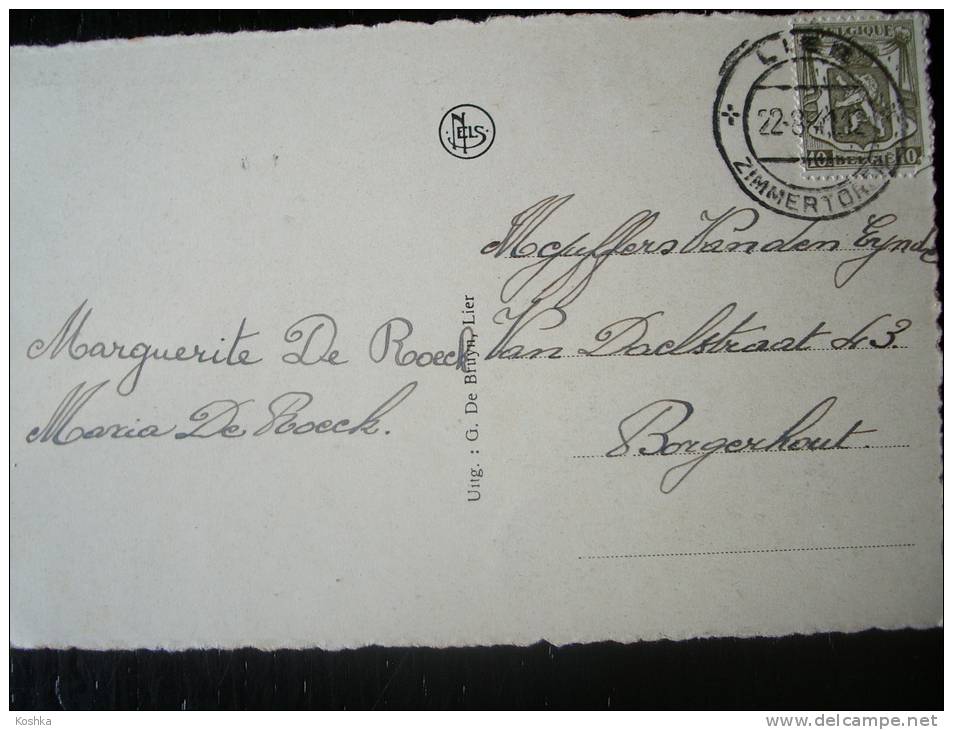 BELGIQUE
LIER
22-8
10 BELGIË 10
ZIMMERTOREN
NELS
Mejuffers Van den Eynde
Van Daelstraat 43.
Borgerhout.
Marguerite De Roeck
Maria De Roeck.
Uitg. : G. De Bruyn, Lier
Koshka
www.delcampe.net